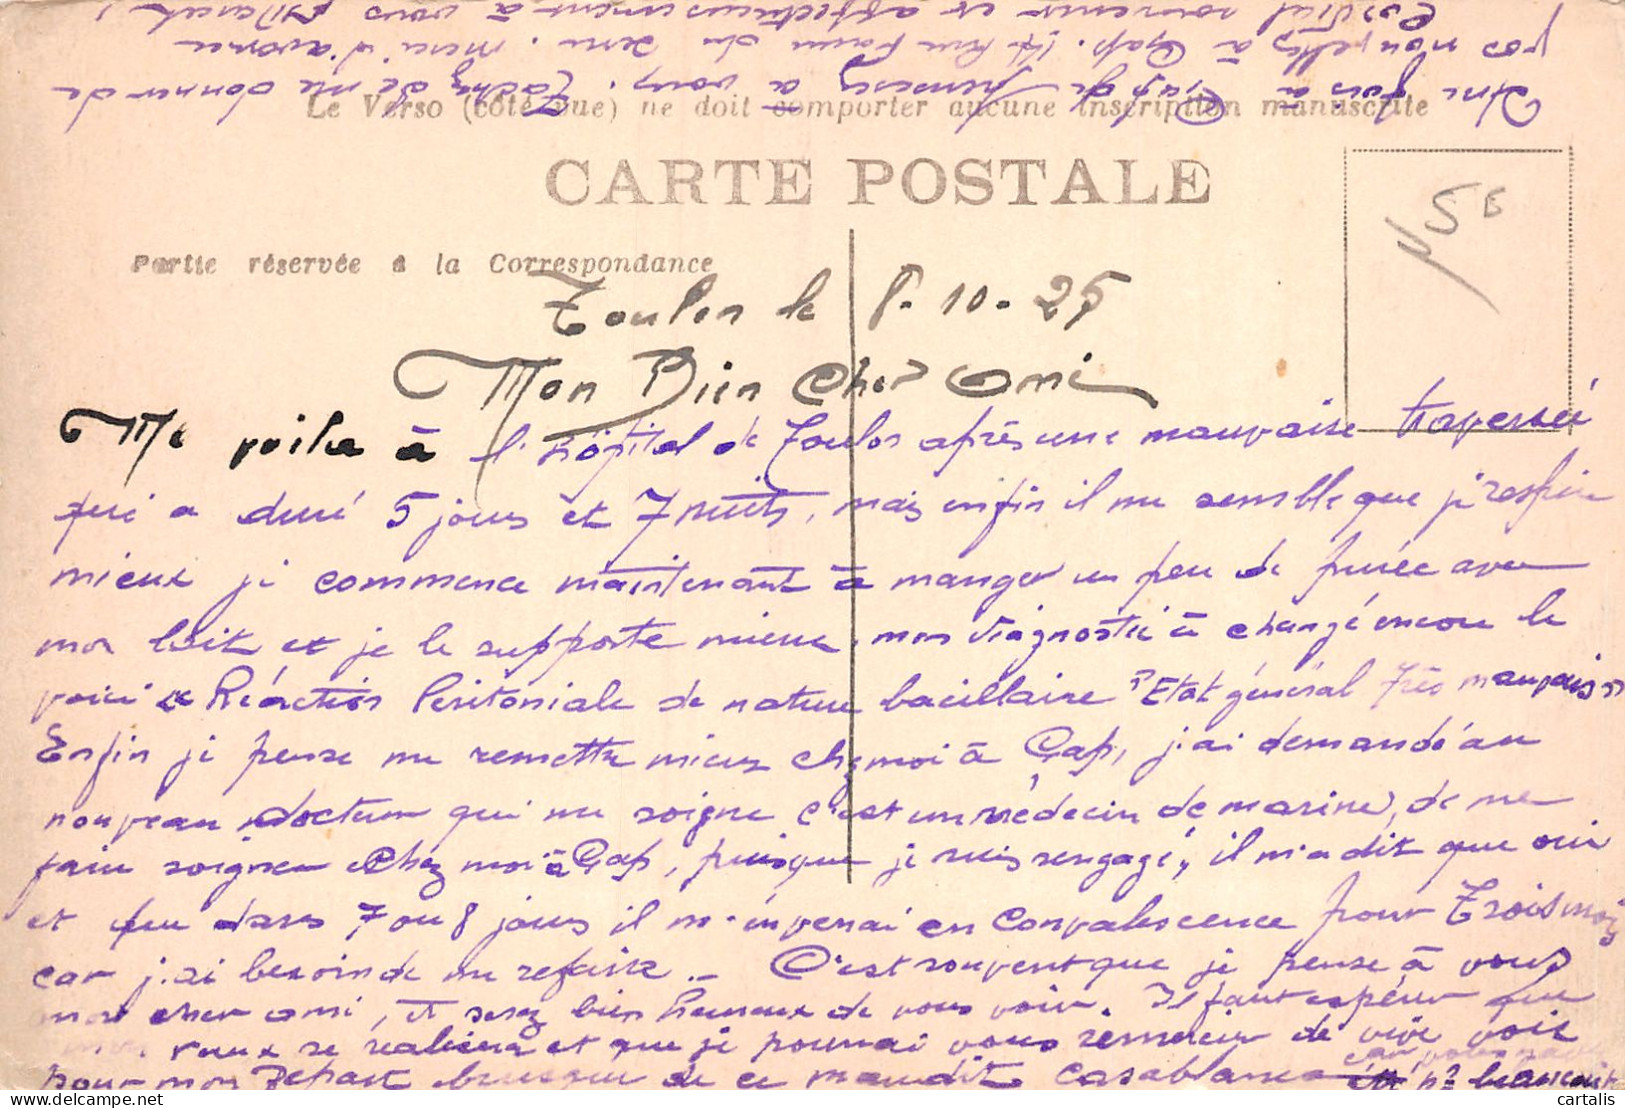 Le Verso (côté vue) ne doit comporter aucune inscription manuscrite
CARTE POSTALE
Partie réservée à la Correspondance
Toulon le 8-10-25
Mon Bien Cher Ami
Me voila à l'hôpital de Toulon après une mauvaise traversée
qui a duré 5 jours et 7 nuits, mais enfin il me semble que je respire
mieux je commence maintenant à manger un peu de purée avec
mon lait et je le supporte mieux, mon diagnostic à changé encore le
voici "Réaction Péritoniale de nature bacillaire" "Etat général très mauvais"
Enfin je pense me remettre mieux chez moi à Gap, j'ai demandé au
nouveau docteur qui me soigne c'est un médecin de marine, de me
faire soigner chez moi à Gap, puisque je suis rengagé, il m'a dit que oui
et que dans 7 ou 8 jours il m'enverrai en convalescence pour Trois mois
car j'ai besoin de me refaire - C'est souvent que je pense à vous
mon cher ami, et serez bien heureux de vous voir. Il faut espérer que
mon vœux se réalisera et que je pourrai vous remercier de vive voix
pour mon départ brusque de ce maudit Casablanca car vous avez
beaucoup
Une fois à Gap je penserez à vous. Tachez de me donner de
vos nouvelles à Gap. 14 rue Faure du Serre. Merci d'avance
Cordial souvenir et affectueusement à vous